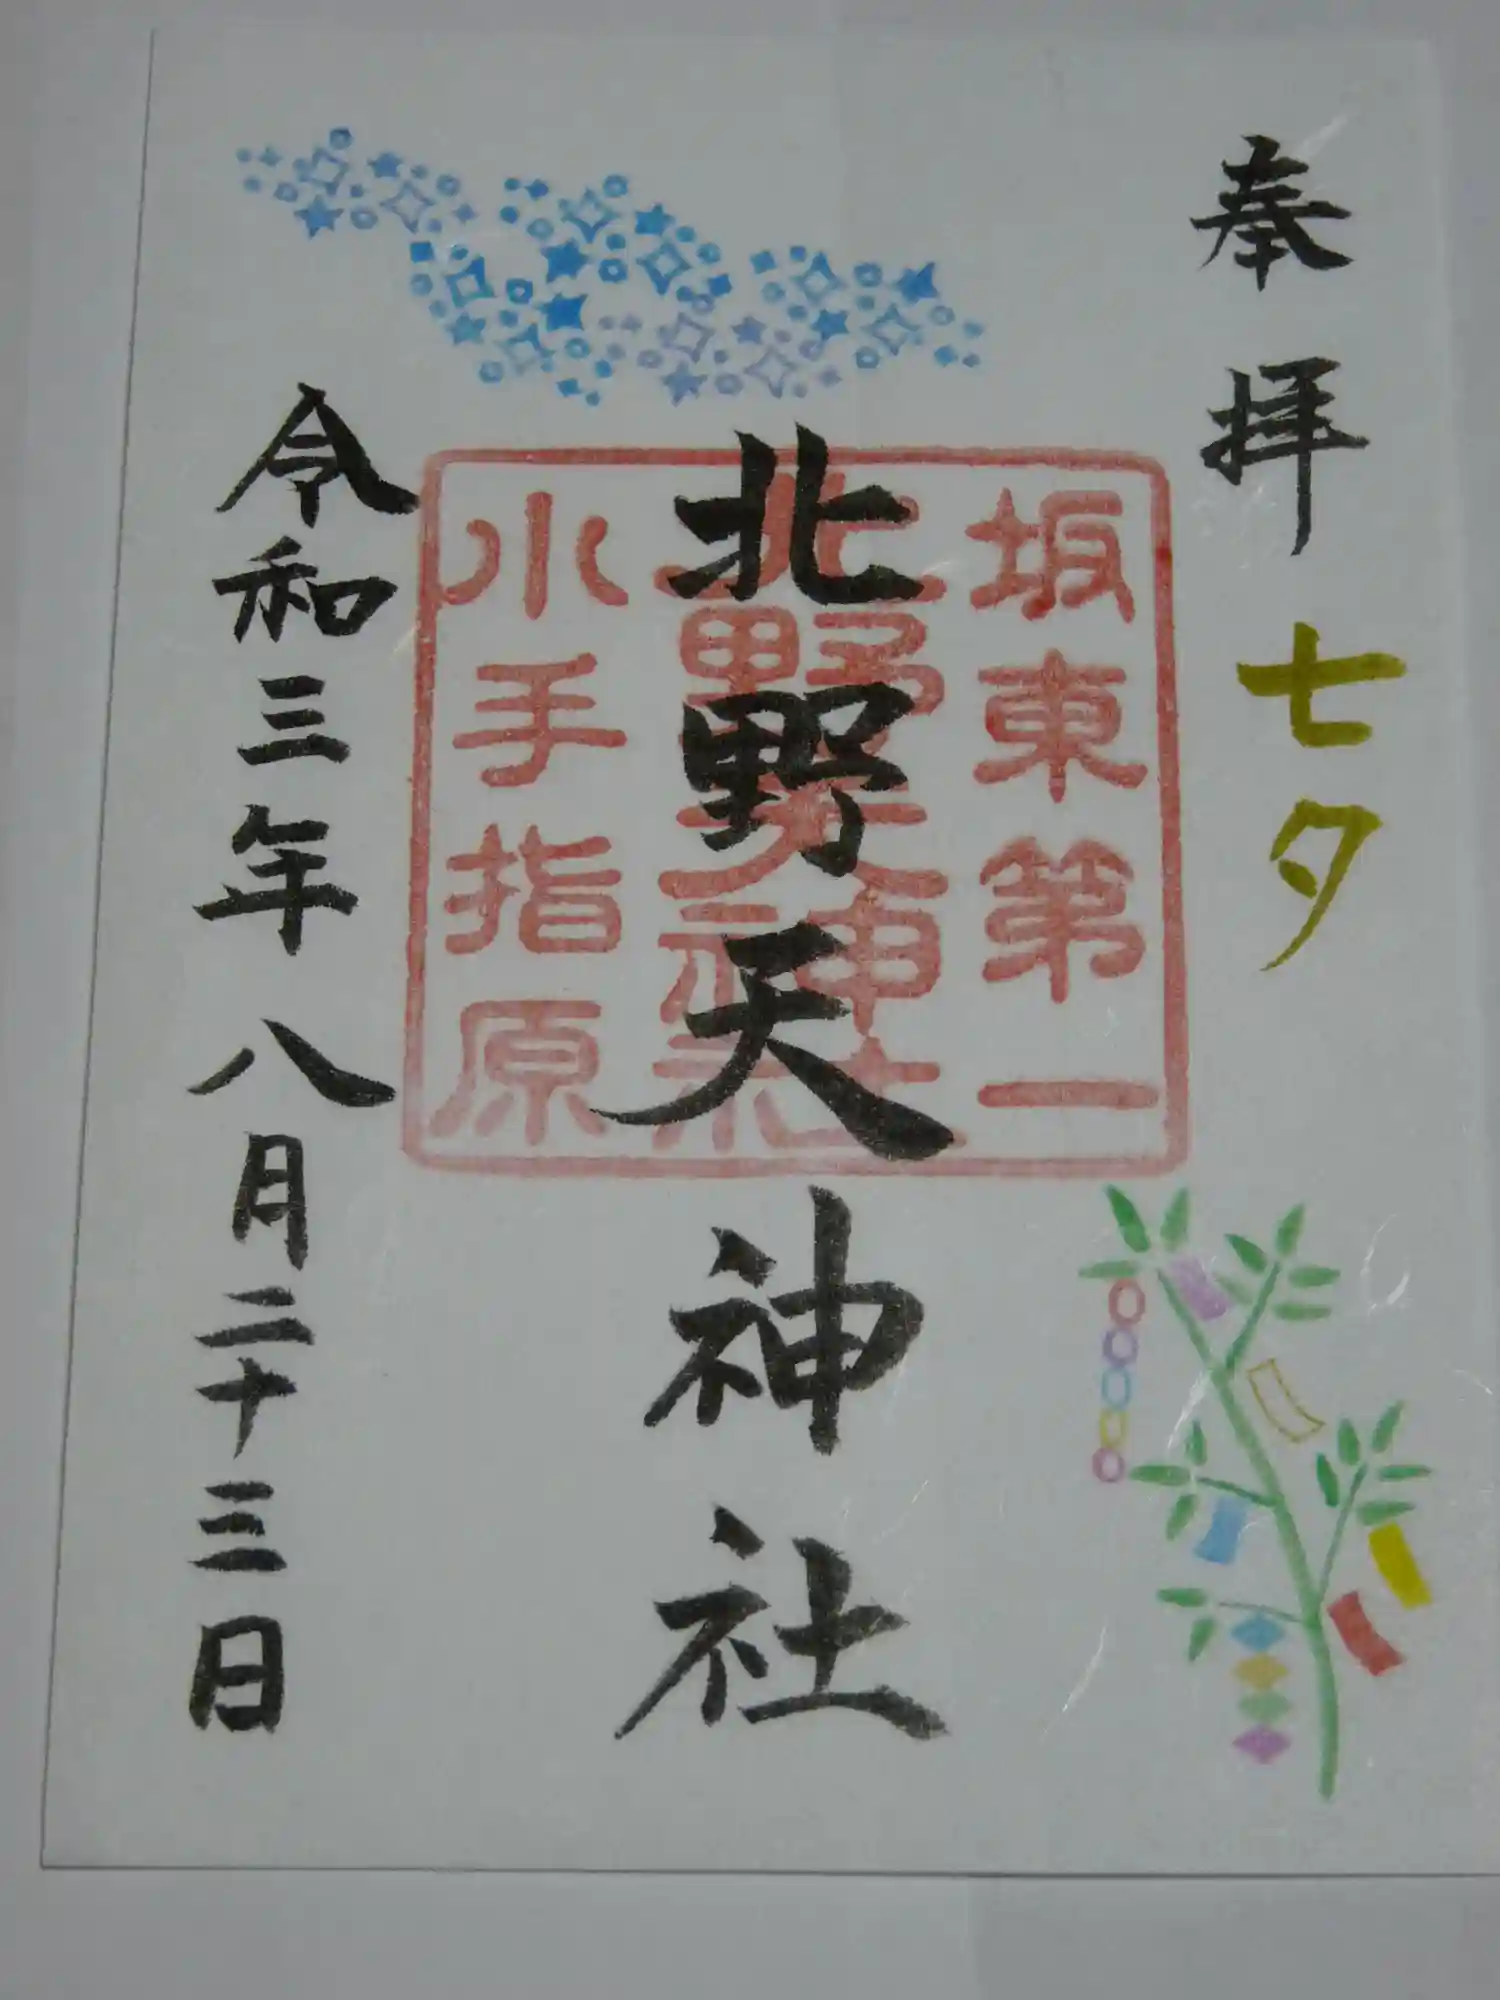 奉拝 七夕
坂東第一
北野天神社
小手指原
北野天神社
令和三年八月二十三日